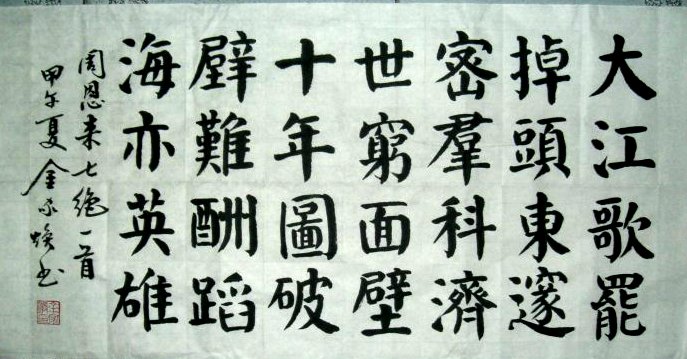 大江歌罷
掉頭東邃
密羣科濟
世窮面壁
十年圖破
壁難酬蹈
海亦英雄
周恩来七绝一首
甲午夏金焕书